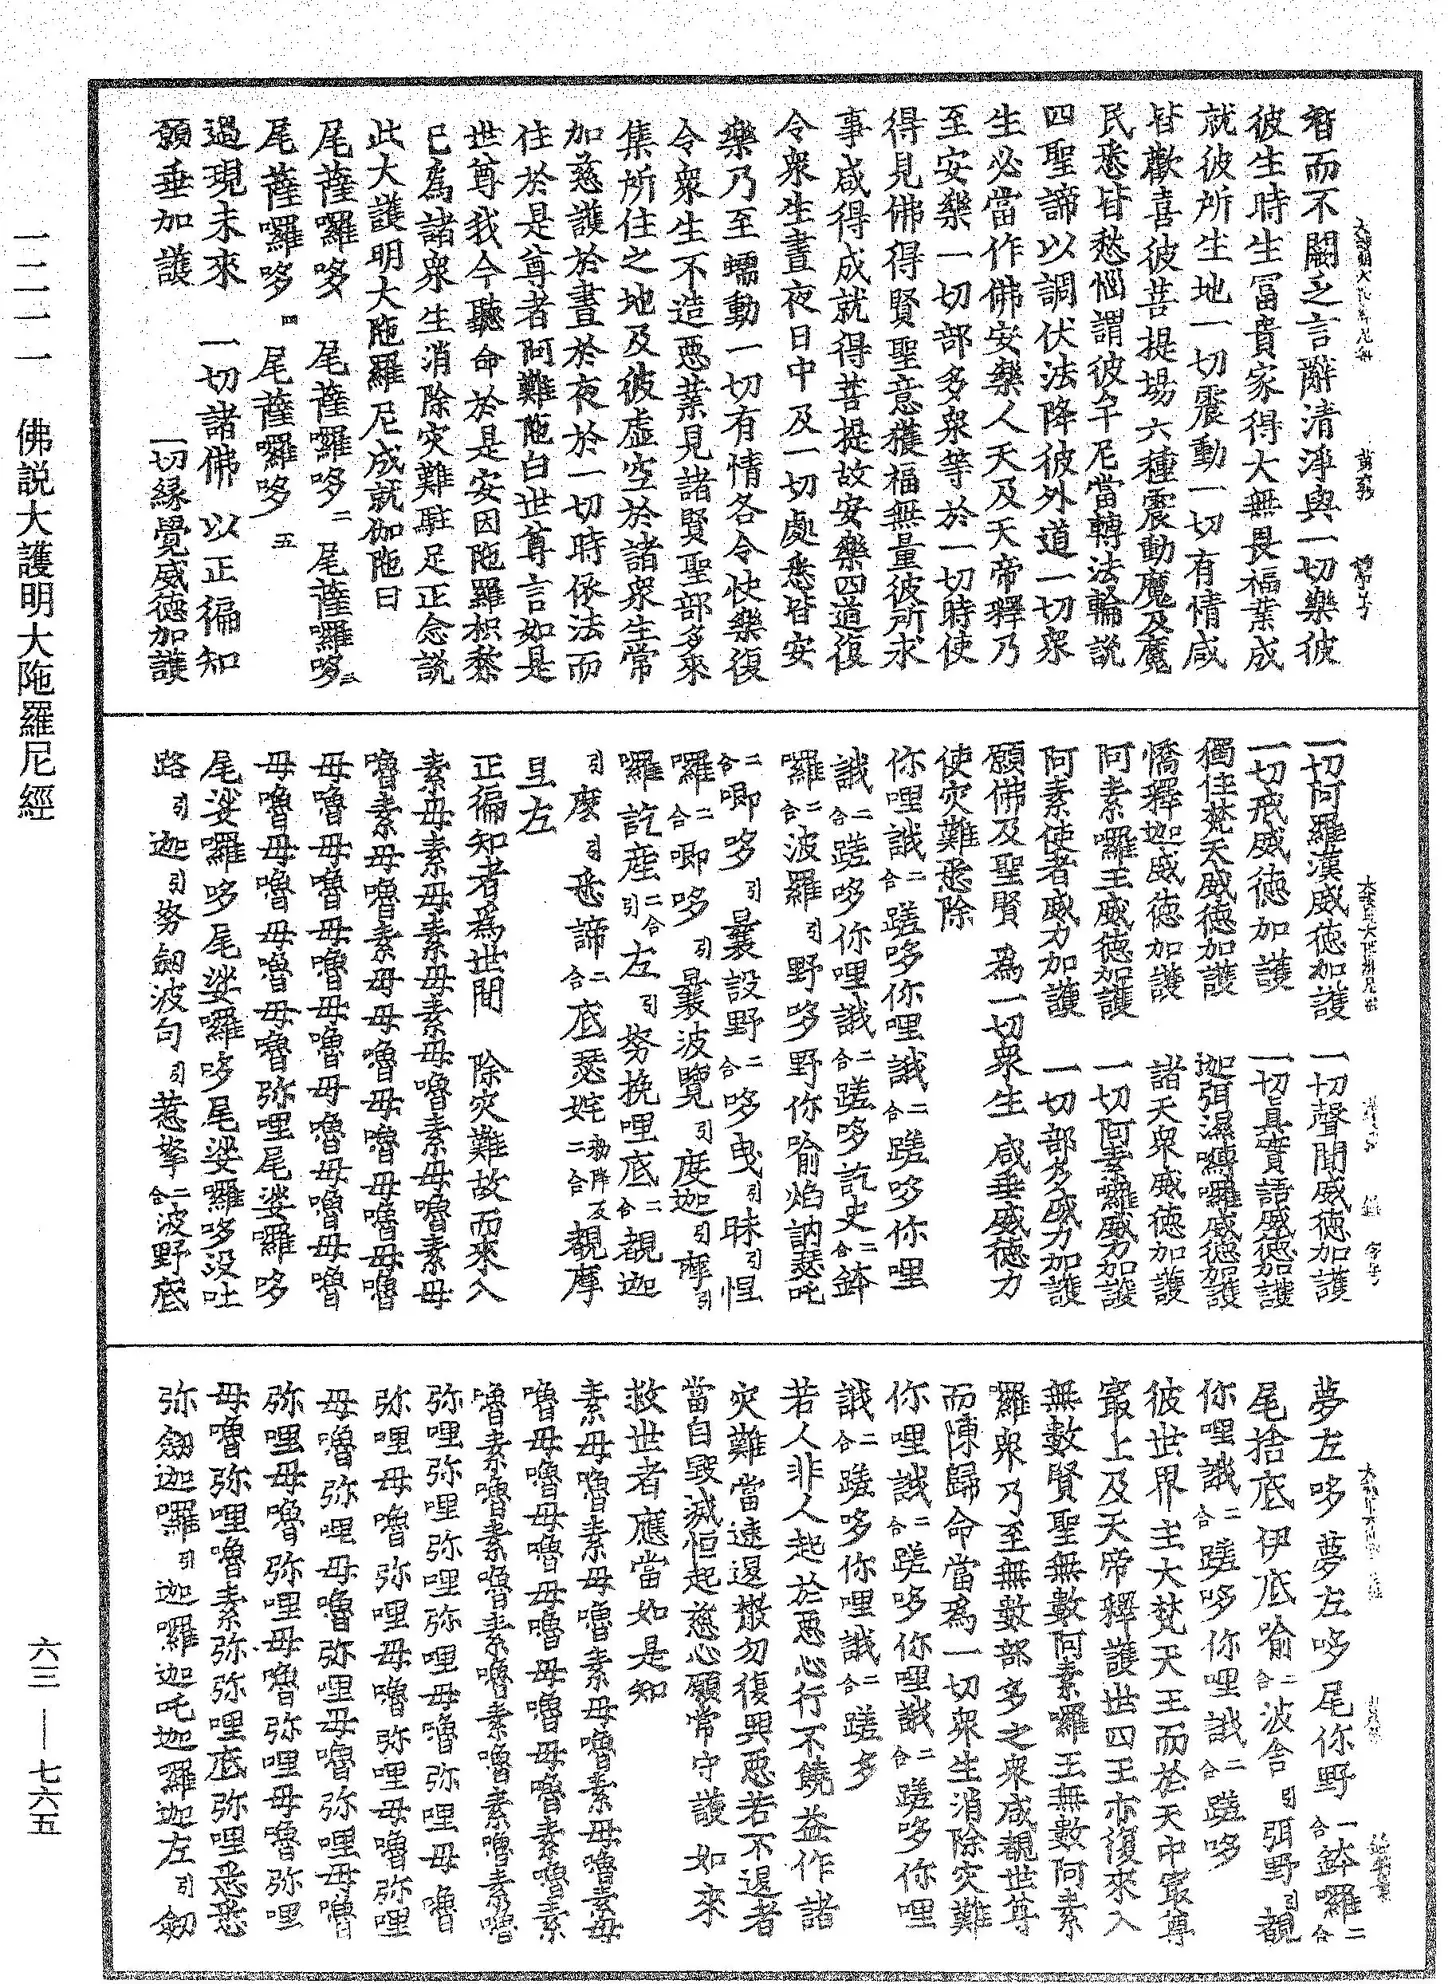 智而不闕之言辭清淨與一切樂彼
彼生時生冨貴家得大無畏福業成
就彼所生地一切震動一切有情咸
皆歡喜彼菩提場六種震動魔及魔
民悉皆愁惱謂彼牟尼當轉法輪說
四聖諦以調伏法降彼外道一切衆
生必當作佛安樂人天及天帝釋乃
至安樂一切部多衆等於一切時使
得見佛得賢聖意獲福無量彼所求
事咸得成就得菩提故安樂四道復
令衆生晝夜日中及一切處悉皆安
樂乃至蠕動一切有情各令快樂復
令衆生不造惡業見諸賢聖部多來
集所住之地及彼虛空於諸衆生常
加慈護於晝於夜於一切時依法而
住於是尊者阿難陁白世尊言如是
世尊我今聽命於是安因陁羅枳愁
已爲諸衆生消除灾難駐足正念說
此大護明大陁羅尼成就伽陁曰
尾薩囉哆 尾薩囉哆二 尾薩囉哆三
尾薩囉哆四 尾薩囉哆五
過現未來 一切諸佛 以正徧知
願垂加護 一切緣覺威德加護
一切阿羅漢威德加護 一切聲聞威德加護
一切戒威德加護 一切真實語威德加護
獨住梵天威德加護 迦弭濕嚩囉威德加護
憍釋迦威德加護 諸天衆威德加護
阿素囉王威德加護 一切阿素囉威力加護
阿素使者威力加護 一切部多威力加護
願佛及聖賢 爲一切衆生 咸垂威德力
使灾難悉除
你哩誐二合蹉哆你哩誐二合蹉哆你哩
誐二合蹉哆你哩誐二合蹉哆訖史二合鉢
囉二合波羅引野哆野你喻焰訥瑟吒
二合唧哆引曩設野二合哆曳引昧引怛
囉二合唧哆引曩波覽引度迦引摩引
囉訖產二合引左引努挽哩底二合覩迦
引麽引悉諦二合底瑟姹二合覩摩
旦左
正徧知者爲世間 除灾難故而來入
素毋素毋素毋素毋嚕素毋嚕素毋
嚕素毋嚕素毋毋嚕毋嚕毋嚕毋嚕
毋嚕毋嚕毋嚕毋嚕毋嚕毋嚕毋嚕
毋嚕毋嚕毋嚕毋嚕弥哩尾娑囉哆
尾娑囉哆尾娑囉哆尾娑囉哆没吐
路引迦引努劒波句引惹拏二合波野底
夢左哆 夢左哆尾你野二合鉢囉二合
尾捨底伊底喻二合波舍引弭野引覩
你哩誐二合蹉哆你哩誐二合蹉哆
彼世界主大梵天王而於天中冣尊
冣上及天帝釋護世四王亦復來入
無數賢聖無數阿素囉王無數阿素
羅衆乃至無數部多之衆咸覩世尊
而陳歸命當爲一切衆生消除灾難
你哩誐二合蹉哆你哩誐二合蹉哆你哩
誐二合蹉哆你哩誐二合蹉多
若人非人起於惡心行不饒益作諸
灾難當速退散勿復興惡若不退者
當自毀滅恒起慈心願常守護 如來
救世者應當如是知
素毋嚕素毋嚕素毋嚕素毋嚕素毋
嚕毋嚕毋嚕毋嚕毋嚕毋嚕素嚕素
嚕素嚕素嚕素嚕素嚕素嚕素嚕
弥哩弥哩弥哩弥哩毋嚕弥哩毋嚕
弥哩毋嚕弥哩毋嚕弥哩毋嚕弥哩
毋嚕弥哩毋嚕弥哩毋嚕弥哩毋嚕
弥哩毋嚕弥哩毋嚕弥哩毋嚕弥哩
毋嚕弥哩嚕素弥弥哩底弥哩悉悉
弥劒迦囉引迦囉迦吒迦囉迦左引劒
一二一一 佛說大護明大陁羅尼經
六三——七六五